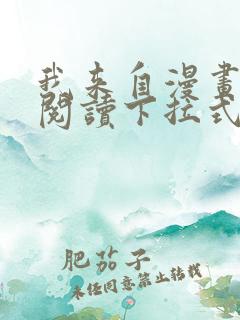 我来自漫畫
閱讀下拉式
肥茄子
未经同意禁止转载